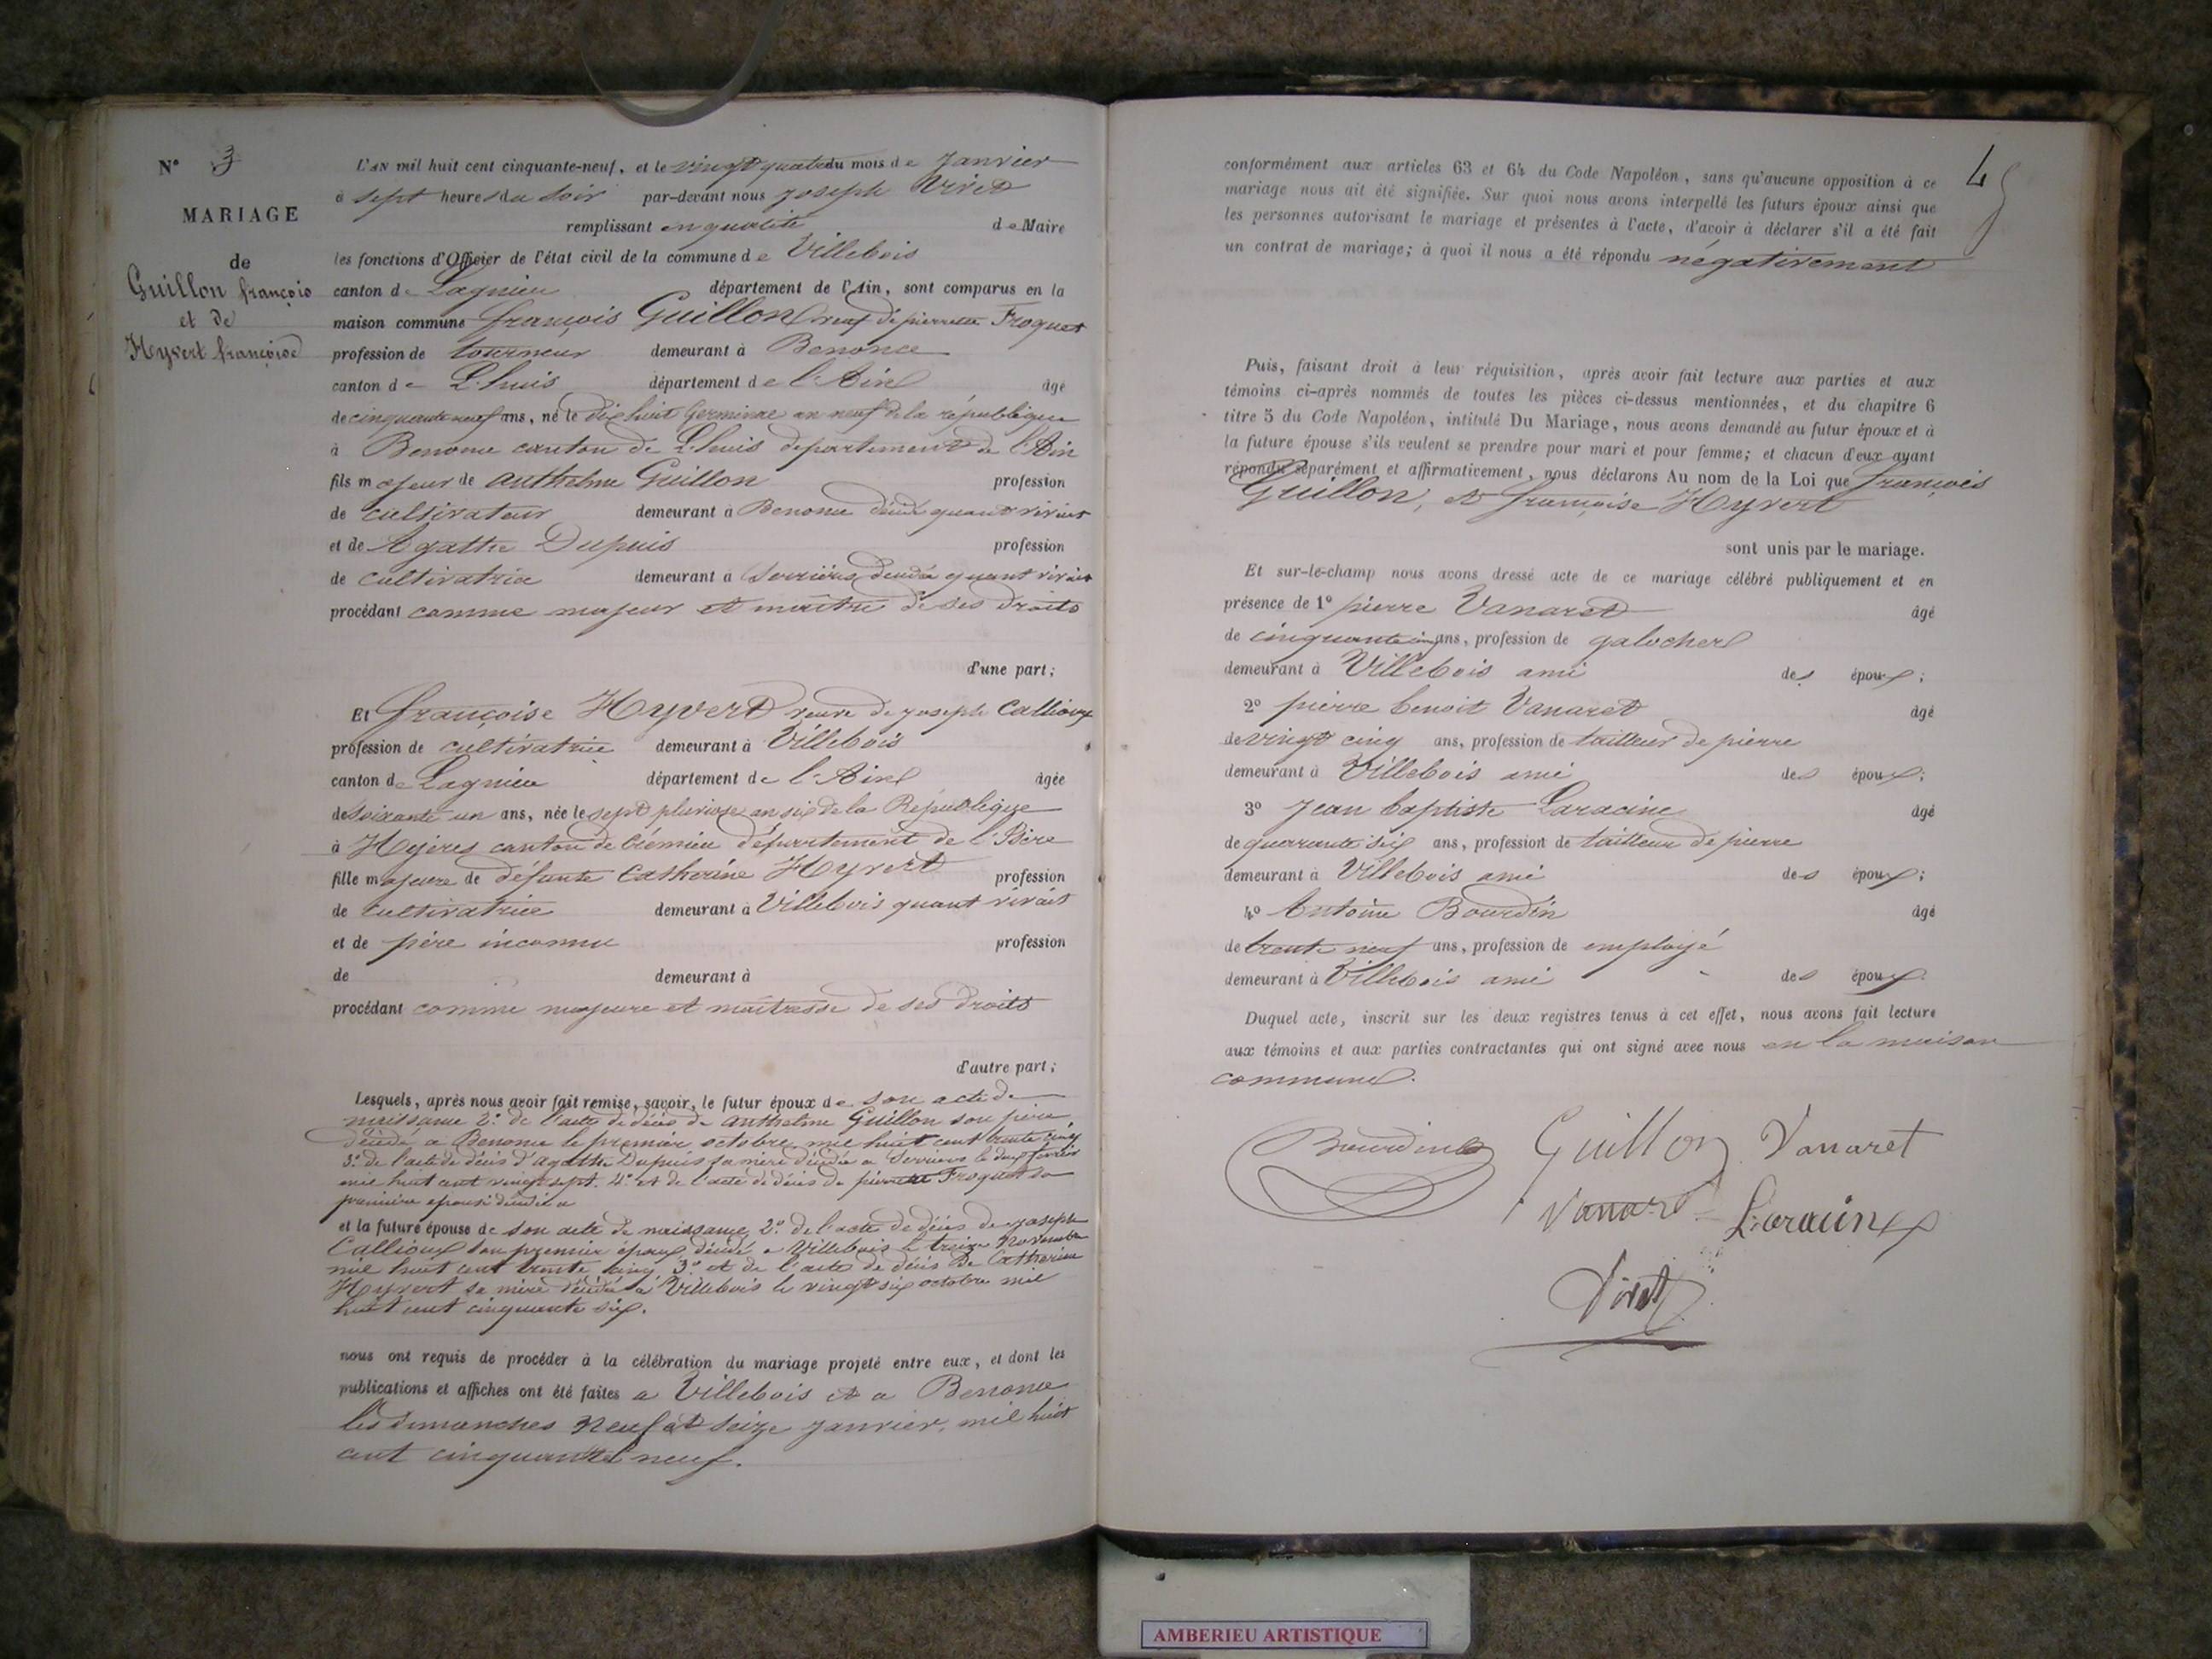 N° 3
MARIAGE
de
Guillon françois
et de
Hyvert françoise
L'AN mil huit cent cinquante-neuf, et le vingt quatre du mois de Janvier
à sept heures du soir par-devant nous joseph Vivet
remplissant en qualité de Maire
les fonctions d'Officier de l'état civil de la commune de Villebois
canton de Lagnieu département de l'Ain, sont comparus en la
maison commune françois Guillon veuf de pierrette Froquet
profession de tourneur demeurant à Benonce
canton de L'huis département de l'Ain âgé
de cinquante neuf ans, né le dix huit Germinal an neuf de la république
à Benonce canton de L'huis département de l'Ain
fils majeur de anthelme Guillon profession
de cultivateur demeurant à Benonce décédé quant vivait
et de Agathe Dupuis profession
de cultivatrice demeurant à Serrières décédée quant vivait
procédant comme majeur et maître de ses droits
d'une part;
Et françoise Hyvert veuve de joseph Callioux
profession de cultivatrice demeurant à Villebois
canton de Lagnieu département de l'Ain âgée
de soixante un ans, née le sept pluviose an six de la République
à Hyères canton de Crémieu département de l'Isère
fille majeure de défunte Catherine Hyvert profession
de cultivatrice demeurant à Villebois quant vivait
et de père inconnu profession
de demeurant à
procédant comme majeure et maîtresse de ses droits
d'autre part;
Lesquels, après nous avoir fait remise, savoir, le futur époux de son acte de
naissance 2° de l'acte de décès de anthelme Guillon son père
décédé a Benonce le premier octobre mil huit cent trente cinq
3° de l'acte de décès d'agathe Dupuis sa mère décédée a Serrieres le deux février
mil huit cent vingt sept. 4° et de l'acte de décès de pierrette Froquet sa
première épouse décédée a
et la future épouse de son acte de naissance 2° de l'acte de décès de joseph
Callioux son premier époux décédé a Villebois le treize Novembre
mil huit cent trente cinq 3° et de l'acte de décès de Catherine
Hyvert sa mère décédée à Villebois le vingt six octobre mil
huit cent cinquante six.
nous ont requis de procéder à la célébration du mariage projeté entre eux, et dont les
publications et affiches ont été faites a Villebois et a Benonce
les dimanches neuf et seize janvier, mil huit
cent cinquante neuf.
4
conformément aux articles 63 et 64 du Code Napoléon, sans qu'aucune opposition à ce
mariage nous ait été signifiée. Sur quoi nous avons interpellé les futurs époux ainsi que
les personnes autorisant le mariage et présentes à l'acte, d'avoir à déclarer s'il a été fait
un contrat de mariage; à quoi il nous a été répondu négativement
Puis, faisant droit à leur réquisition, après avoir fait lecture aux parties et aux
témoins ci-après nommés de toutes les pièces ci-dessus mentionnées, et du chapitre 6
titre 5 du Code Napoléon, intitulé Du Mariage, nous avons demandé au futur époux et à
la future épouse s'ils veulent se prendre pour mari et pour femme; et chacun d'eux ayant
répondu séparément et affirmativement, nous déclarons Au nom de la Loi que françois
Guillon, et françoise Hyvert
sont unis par le mariage.
Et sur-le-champ nous avons dressé acte de ce mariage célébré publiquement et en
présence de 1° pierre Vanaret âgé
de cinquante cinq ans, profession de galocher
demeurant à Villebois ami des époux;
2° pierre benoit Vanaret âgé
de vingt cinq ans, profession de tailleur de pierre
demeurant à Villebois ami des époux;
3° Jean baptiste Laracine âgé
de quarante six ans, profession de tailleur de pierre
demeurant à Villebois ami des époux;
4° Antoine Bourdin âgé
de trente neuf ans, profession de employé
demeurant à Villebois ami des époux.
Duquel acte, inscrit sur les deux registres tenus à cet effet, nous avons fait lecture
aux témoins et aux parties contractantes qui ont signé avec nous en la maison
commune.
Bourdin Guillon Vanaret
Vanaret Laracine
Vivet
AMBERIEU ARTISTIQUE